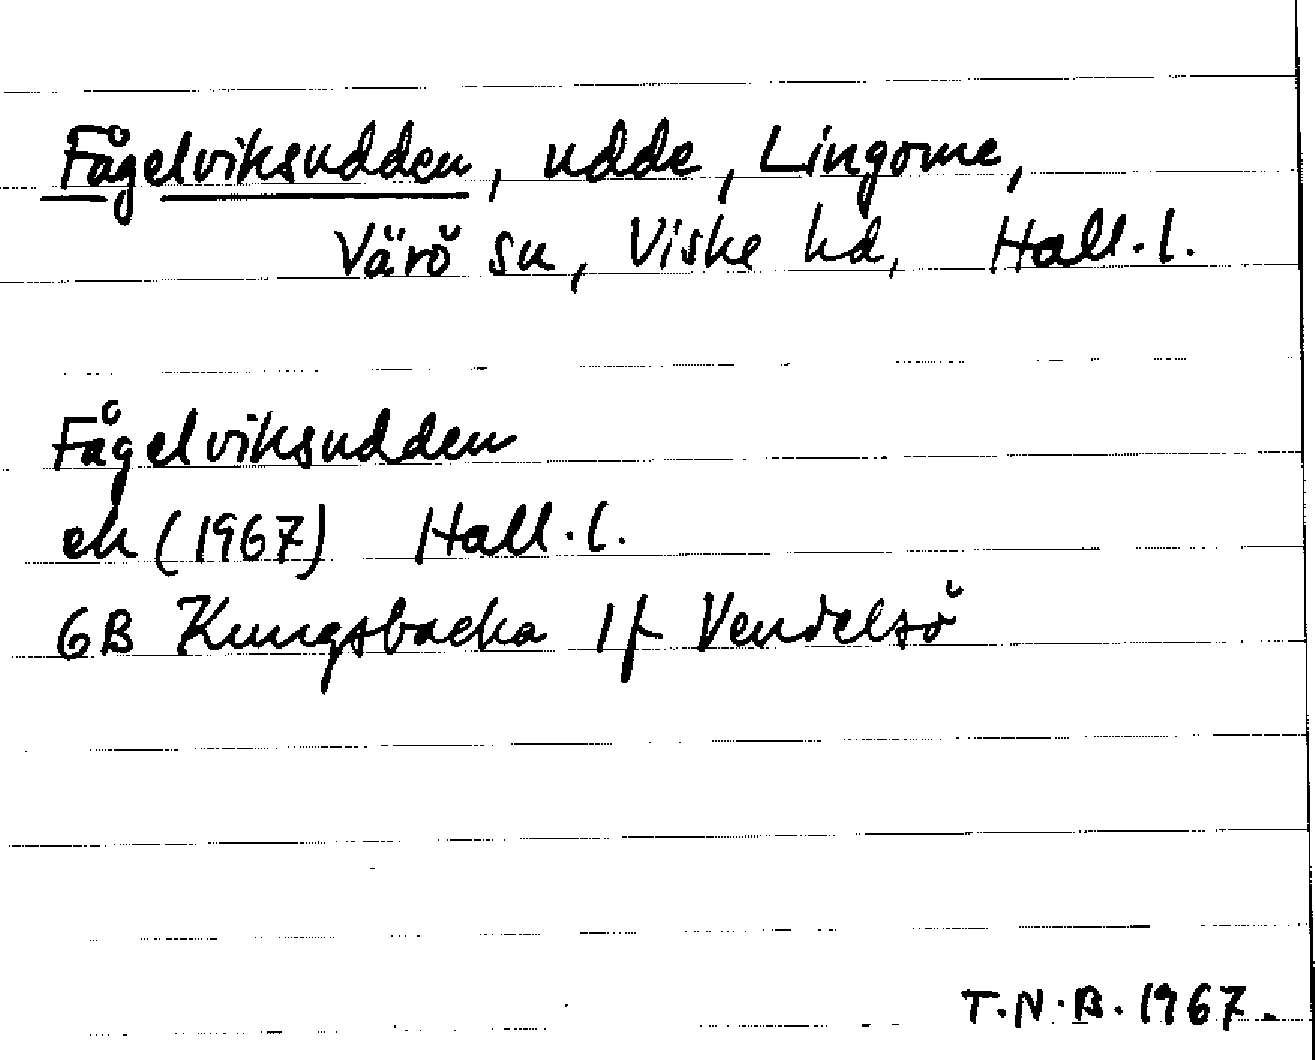 Fågelviksudden, udde, Lingome,
Värö sn, Viske hd, Hall.l.
Fågelviksudden
ek (1967) Hall.l.
6B Kungsbacka 1f Vendelsö
T.N.B. 1967.